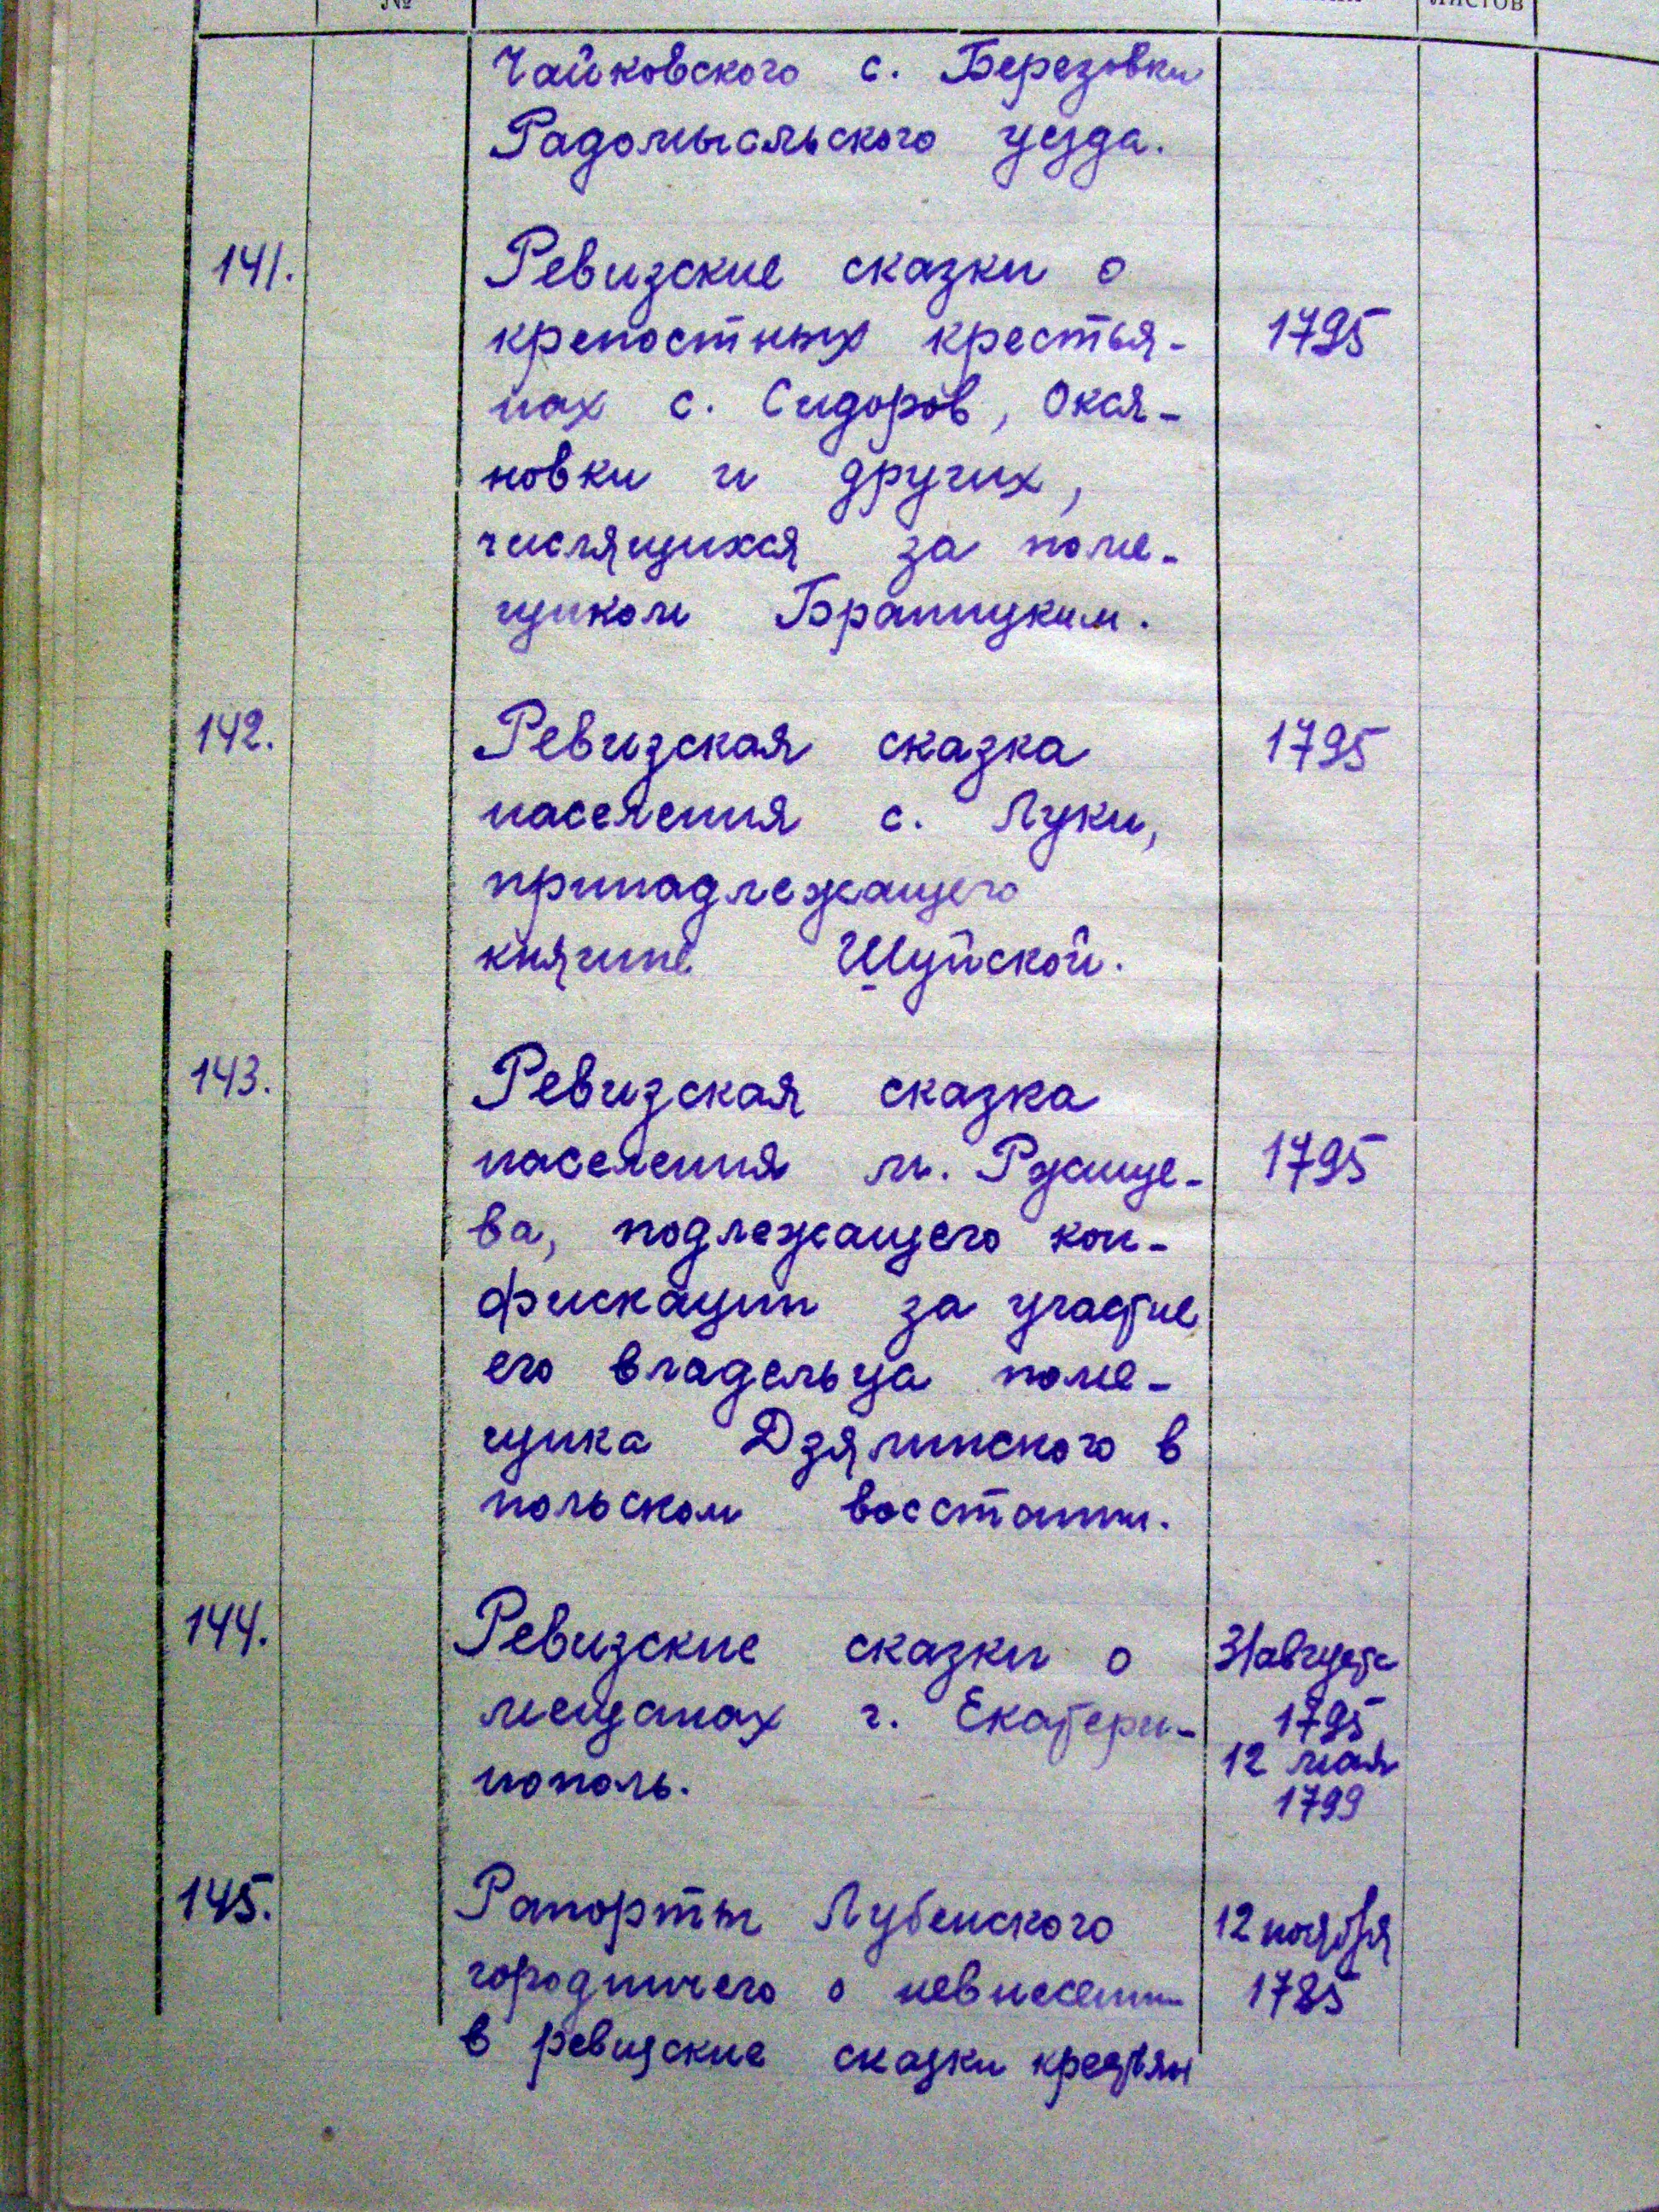 №
листов
Чайковского с. Березовки
Радомысльского уезда.
141.
Ревизские сказки о
крепостных крестья-
1795
нах с. Сидоров, Окся-
новки и других,
числящихся за поме-
щиком Браницким.
142.
Ревизская сказка
1795
населения с. Луки,
принадлежащего
княгине Шуйской.
143.
Ревизская сказка
населения м. Ржище-
1795
ва, подлежащего кон-
фискации за участие
его владельца поме-
щика Дзялинского в
польском восстании.
144.
Ревизские сказки о
31 августа
мещанах г. Екатери-
1795
12 мая
нополь.
1799
145.
Рапорты Лубенского
12 ноября
городничего о невнесении
1785
в ревизские сказки крестьян